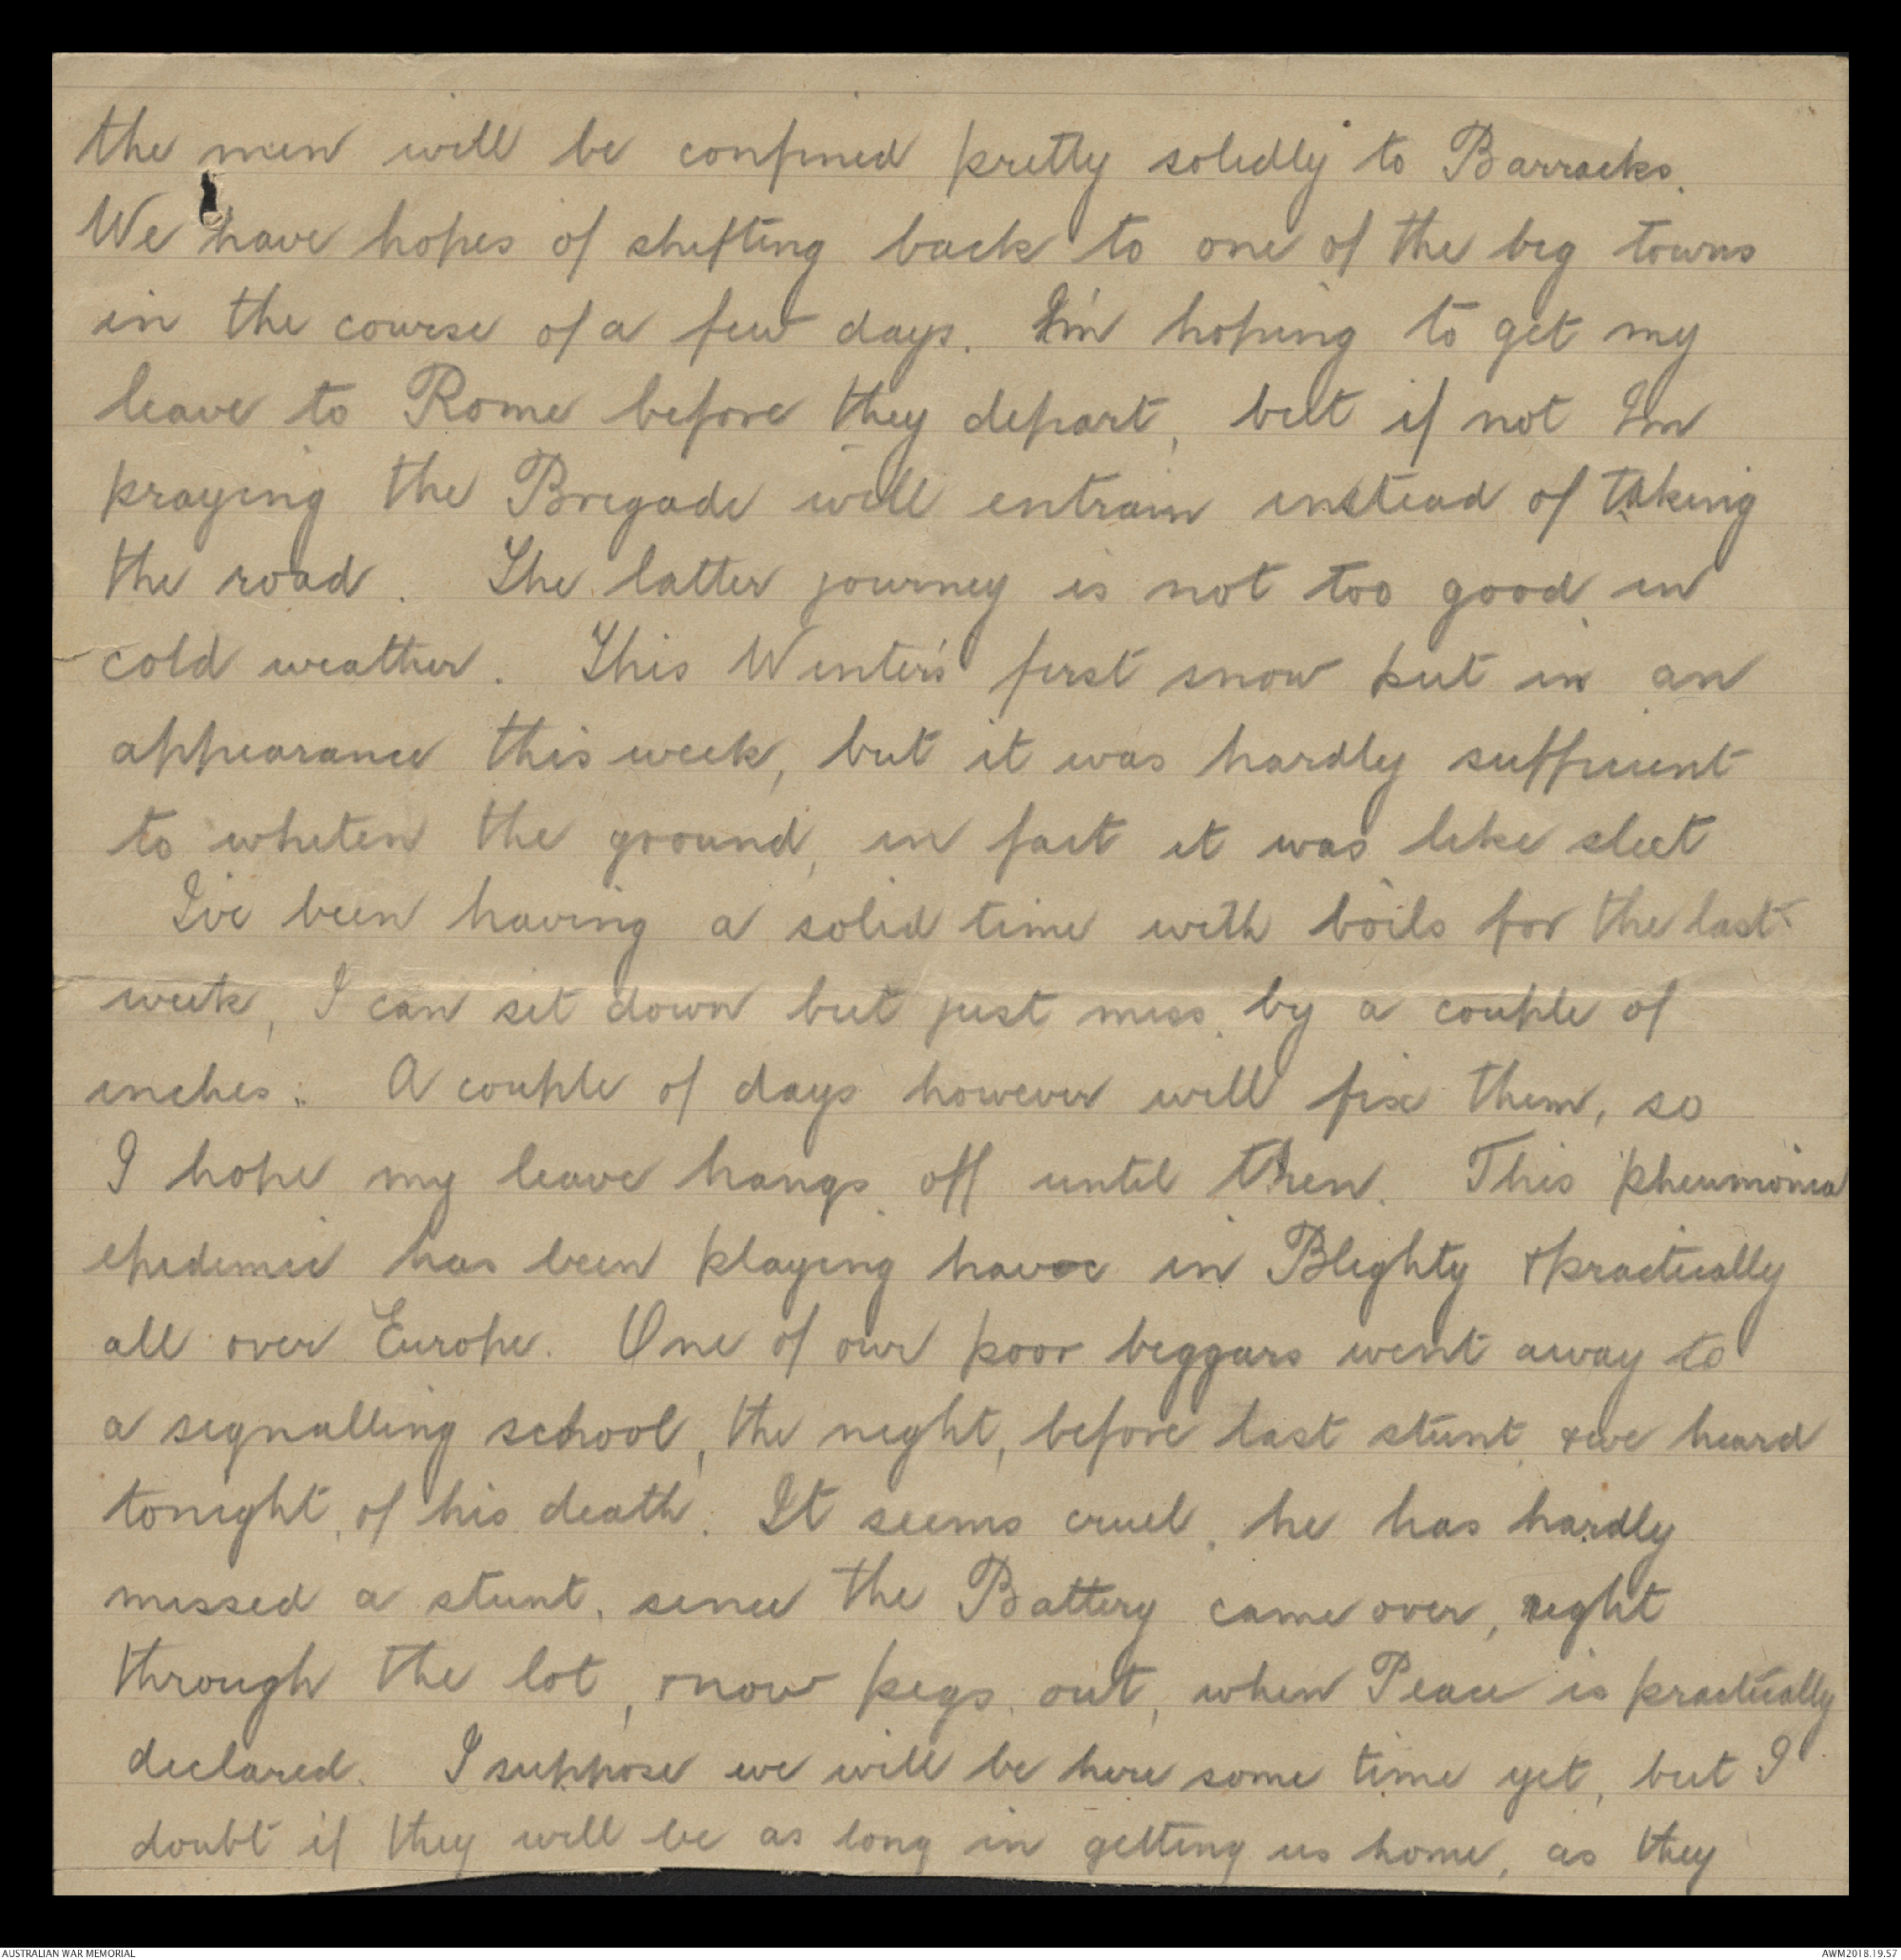 the men will be confined pretty solidly to Barracks.
We have hopes of shifting back to one of the big towns
in the course of a few days. I'm hoping to get my
leave to Rome before they depart, but if not Im
praying the Brigade will entrain instead of taking
the road. The latter journey is not too good in
cold weather. This Winter's first snow put in an
appearance this week, but it was hardly sufficient
to whiten the ground, in fact it was like sleet
I've been having a solid time with boils for the last
week, I can sit down but just miss by a couple of
inches. A couple of days however will fix them, so
I hope my leave hangs off until then. This pneumonia
epidemic has been playing havoc in Blighty & practically
all over Europe. One of our poor beggars went away to
a signalling school, the night, before last stunt, & we heard
tonight, of his death. It seems cruel, he has hardly
missed a stunt, since the Battery came over, right
through the lot, & now pegs out, when Peace is practically
declared. I suppose we will be here some time yet, but I
doubt if they will be as long in getting us home, as they
AUSTRALIAN WAR MEMORIAL
AWM2018.19.57